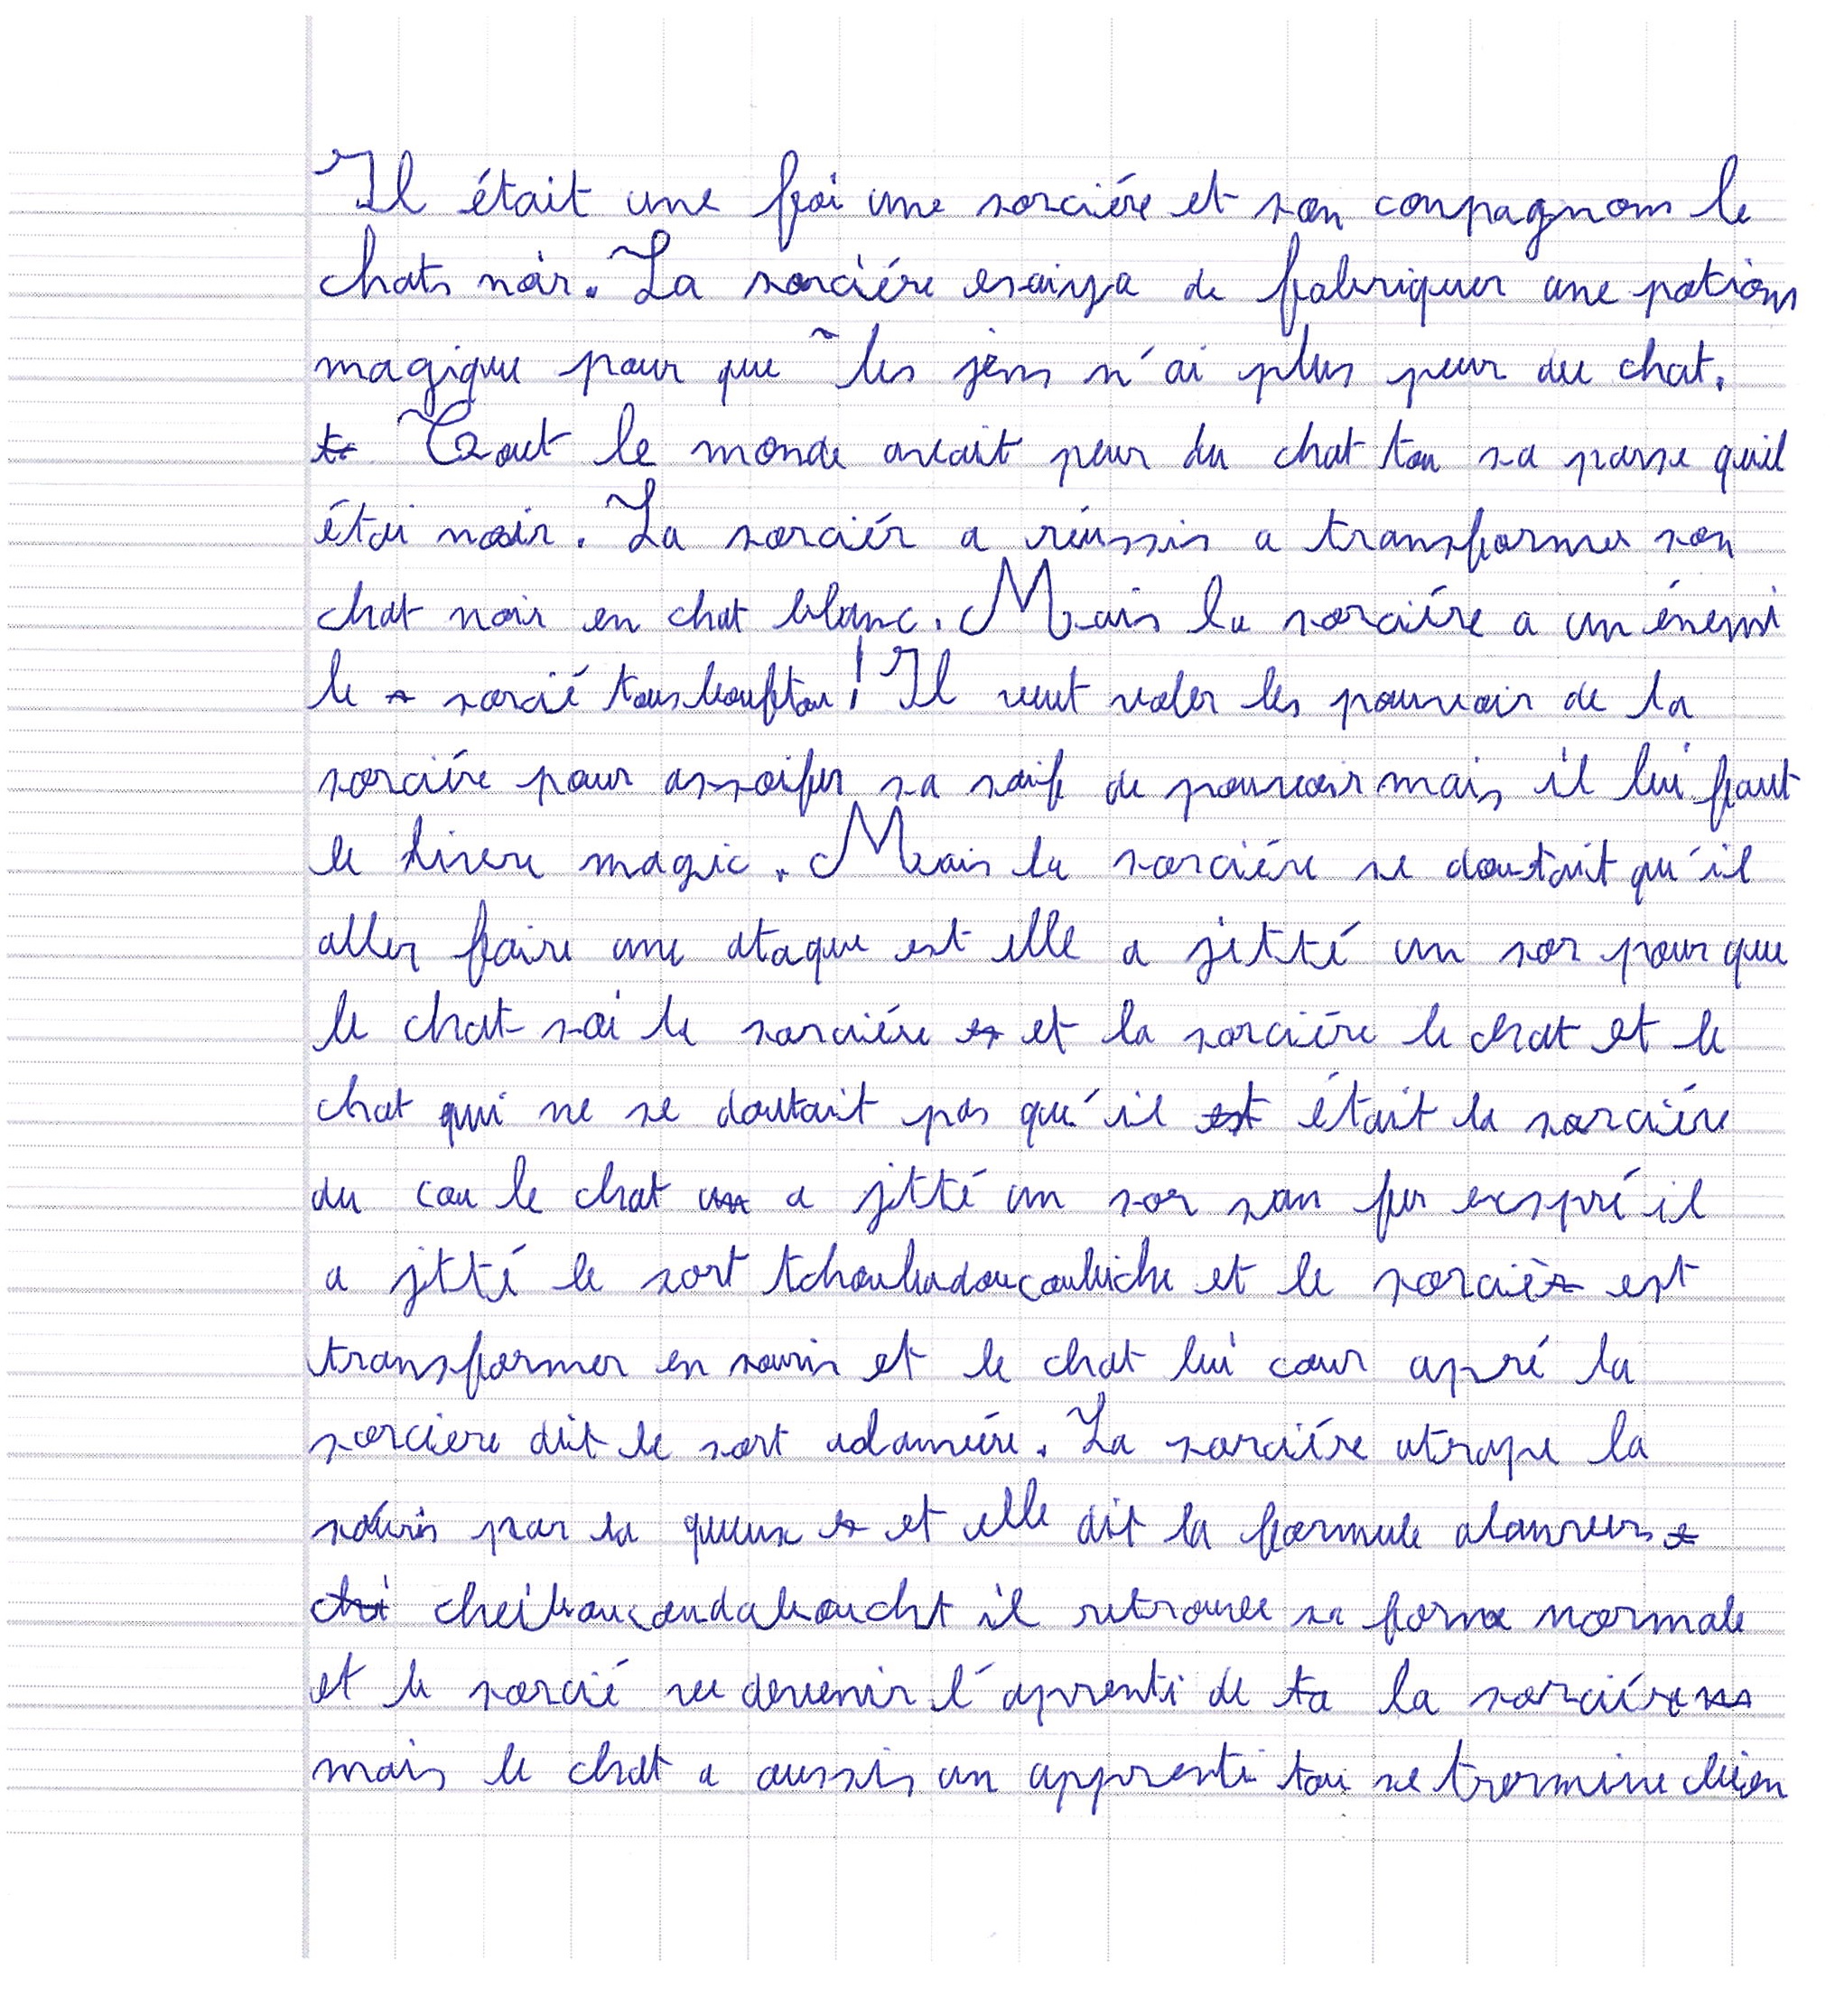 Il était une foi une sorciére et son conpagnons le
chats noir. La sorciére esaiya de fabriquer une potions
magique pour que les jens n'ai plus peur du chat.
Tout le monde avait peur du chat tou sa parse quil
étai noir. La sorciér a réussis a transformer son
chat noir en chat blanc. Mais la sorciére a un énemi
le sorcié tousbouftou ! Il veut voler les pouvoir de la
sorciére pour assoifer sa soif de pouvoir mais il lui faut
le livre magic. Mais la sorciére se doutait qu'il
aller faire une ataque est elle a jetté un sor pour que
le chat soi la sorciére et la sorciére le chat et le
chat qui ne se doutait pas qu'il était la sorciére
du cou le chat a jetté un sor san fer exspré il
a jetté le sort tchoubadoucoubiche et le sorcié est
transformer en souris et le chat lui cour apré la
sorciere dit le sort adamiére. La sorciére atrape la
souris par la queux et elle dit la formule
il retrouve sa forme normale
et le sorcié va devenir l'aprenti de la sorciére
mais le chat a aussis un apprenti tou se tremine bien